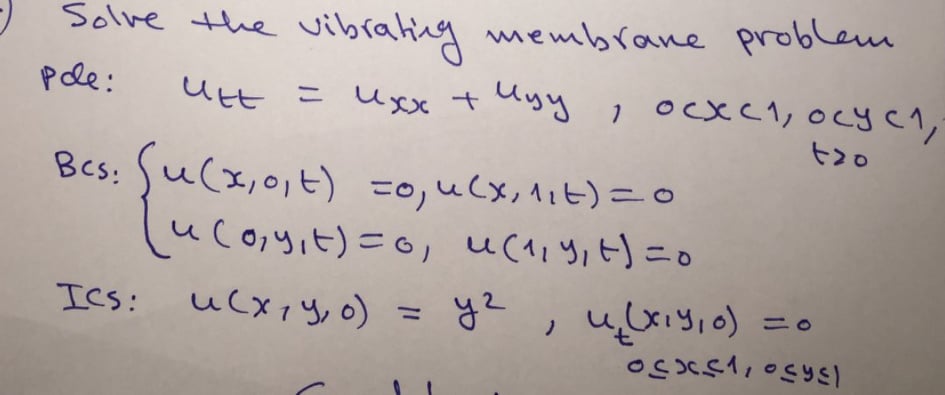 ) Solve the vibrating membrane problem
pde: utt = uxx + uyy , 0<x<1, 0<y<1,
t>0
BCs: { u(x,0,t) =0, u(x,1,t) = 0
u(0,y,t) = 0, u(1,y,t) = 0
ICs: u(x,y,0) = y² , ut(x,y,0) = 0
0≤x≤1, 0≤y≤1